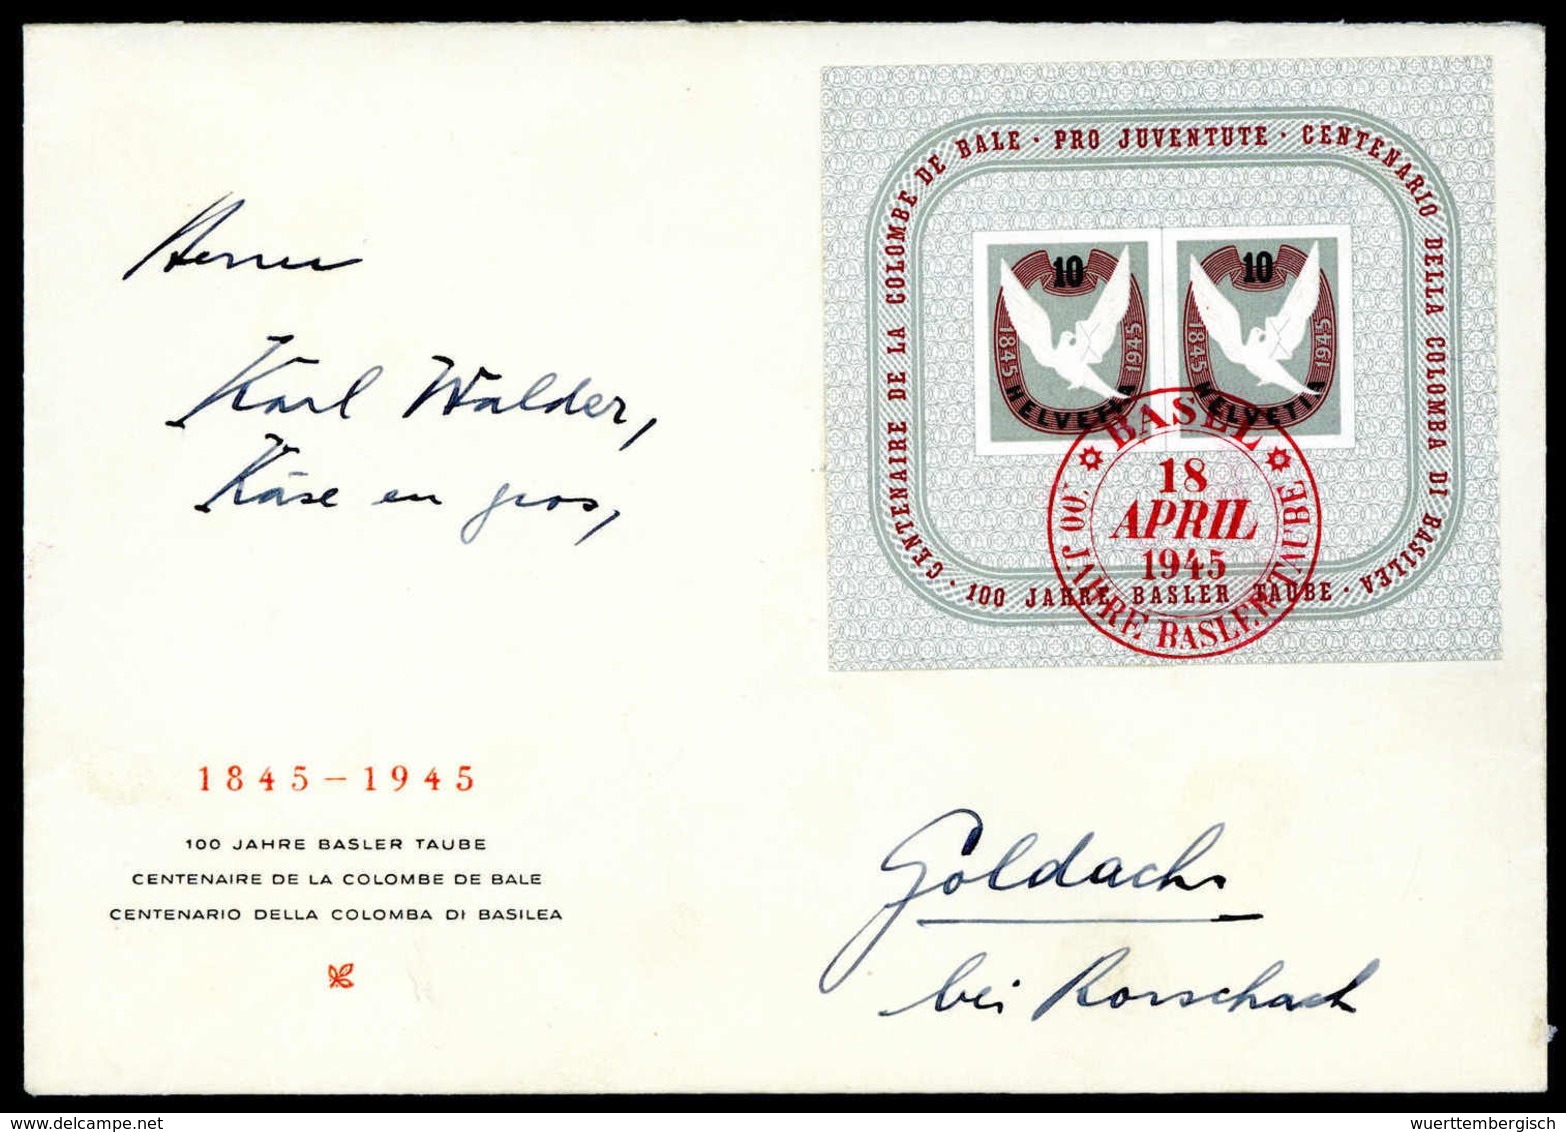 Herrn
Karl Walder,
Käse en gros,
CENTENAIRE DE LA COLOMBE DE BALE · PRO JUVENTUTE · CENTENARIO DELLA COLOMBA DI BASILEA · 100 JAHRE BASLER TAUBE ·
10
1845 1945
HELVETIA
10
1845 1945
HELVETIA
BASEL
18
APRIL
1945
100 JAHRE BASLER TAUBE
1845 – 1945
100 JAHRE BASLER TAUBE
CENTENAIRE DE LA COLOMBE DE BALE
CENTENARIO DELLA COLOMBA DI BASILEA
Goldach
bei Rorschach
wuerttembergisch